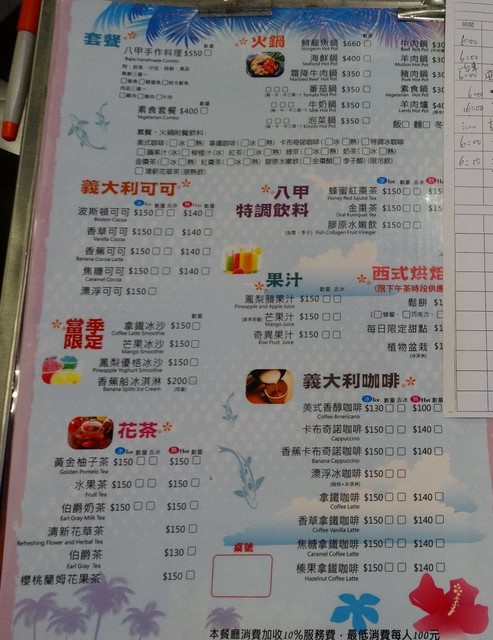 套餐
八甲手作料理 $550
Bajia Handmade Combo
素食套餐 $400
Vegetarian Combo
套餐、火鍋附餐飲料:
火鍋
鱘龍魚鍋 $660
Sturgeon Hot Pot
海鮮鍋 $400
Seafood Hot Pot
霜降牛肉鍋 $350
番茄鍋 $350
Tomato Hot Pot
牛奶鍋 $350
Milk Hot Pot
泡菜鍋 $350
Kimchi Hot Pot
牛肉鍋 $30
羊肉鍋 $30
Mutton Hot Pot
豬肉鍋 $30
Pork Hot Pot
素食鍋 $30
Vegetarian Hot Pot
羊肉爐 $40
飯 麵 冬
義大利可可
冰 Ice 數量 去冰 熱 Hot 數量
波斯頓可可 $150 $140
Boston Cocoa
香草可可 $150 $140
Vanilla Cocoa
香蕉可可 $150 $140
Banana Cocoa Latte
焦糖可可 $150 $140
Caramel Cocoa
漂浮可可 $150
八甲
特調飲料
蜂蜜紅棗茶 $150 $15
Honey Red Jujube Tea
金棗茶 $150 $15
Oval Kumquat Tea
膠原水嫩飲 $150
(金棗、李子) Fish Collagen Fruit Vinegar
果汁
數量 去冰
鳳梨蘋果汁 $150
Pineapple and Apple Juice
芒果汁 $150
Mango Juice
奇異果汁 $150
Kiwi Fruit Juice
西式烘焙
(限下午茶時段供應
鬆餅 $1
(蜂蜜、巧克力、
每日限定甜點 $1
植物盆栽 $1
(冰淇淋)
當季
限定
數量
拿鐵冰沙 $150
Coffee Latte Smoothie
芒果冰沙 $150
Mango Smoothie
鳳梨優格冰沙 $150
Pineapple Yoghurt Smoothie
香蕉船冰淇淋 $200
Banana Splits Ice Cream
義大利咖啡
冰 Ice 數量 去冰 熱 Hot 數量
美式香醇咖啡 $130 $100
Coffee Americano
卡布奇諾咖啡 $150 $140
Cappuccino
香蕉卡布奇諾咖啡 $150 $140
Banana Cappuccino
漂浮冰咖啡 $150
(咖啡+冰淇淋)
拿鐵咖啡 $150 $140
Coffee Latte
香草拿鐵咖啡 $150 $140
Vanilla Coffee Latte
焦糖拿鐵咖啡 $150 $140
Caramel Coffee Latte
榛果拿鐵咖啡 $150 $140
Hazelnut Coffee Latte
花茶
冰 Ice 數量 去冰 熱 Hot 數量
黃金柚子茶 $150 $150
Golden Pomelo Tea
水果茶 $150 $150
Fruit Tea
伯爵奶茶 $150 $150
Earl Gray Milk Tea
清新花草茶 $150
Refreshing Flower and Herbal Tea
伯爵茶 $130
Earl Gray Tea
櫻桃蘭姆花果茶 $150
桌號
本餐廳消費加收10%服務費，最低消費每人100元